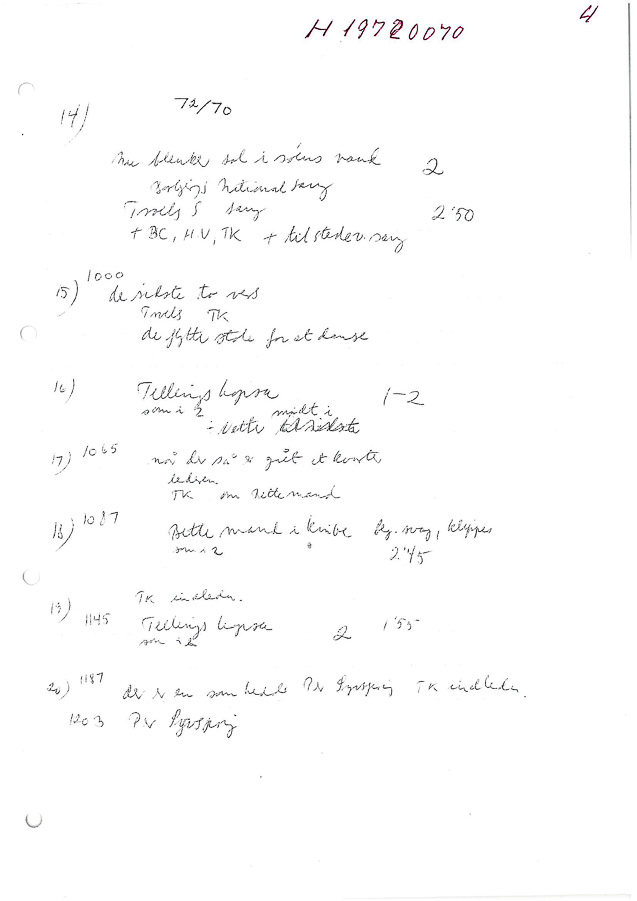 H 19720070
4
14) 72/70
Nu blenke sol i søens vand 2
Nationalsang
Troels S sang 2'50
+ BC, HV, TK + tilstedev. sang
15) 1000 de sidste to vers
Troels TK
de flytte stole for at danse
16) Tellings hopsa 1-2
som i 2 midt i
- dette til sidste
17) 1065 nå der så er gået et kvarte
lederen
TK om Bette mand
18) 1087 Bette mand i knibe beg. svag, klappes
som i 2 2'45
TK indleder.
19) 1145 Tellings hopsa 2 1'55
som i 2
20) 1187 der er en som hedder Per TK indleder.
1203 Per